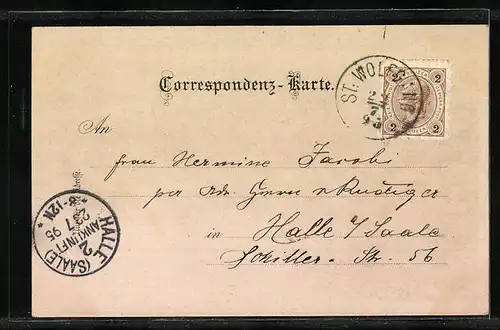 Correspondenz-Karte.
ST. WOLFGANG
2 2
2 2
An
Frau Hermine Jacobi
per Adr. Herrn Rudiger
in Halle a/Saale
Schiller-Str. 56
HALLE (SAALE)
2
ANKUNFT
23 7 95
8-12N